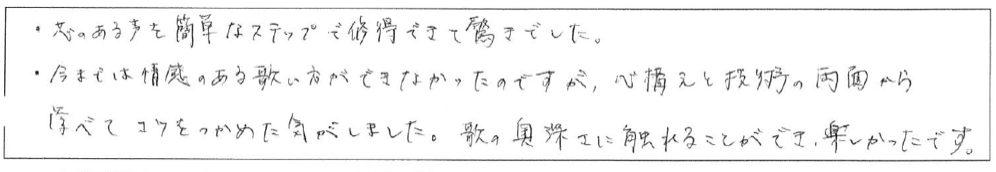 ・芯のある声を簡単なステップで修得できて驚きでした。
・今までは情感のある歌い方ができなかったのですが、心構えと技術の両面から
学べてコツをつかめた気がしました。歌の奥深さに触れることができ、楽しかったです。